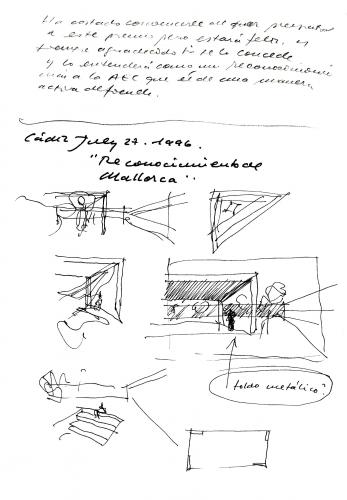 Ha costado convencerle del que presentara
a este premio pero estará feliz, es
porque agradecido si se lo concede
y lo entenderá como un reconocimiento
más a la AEC que él de una manera
activa defiende.
Cádiz July 27. 1996.
"Reconocimiento de
Mallorca".
toldo metálico?